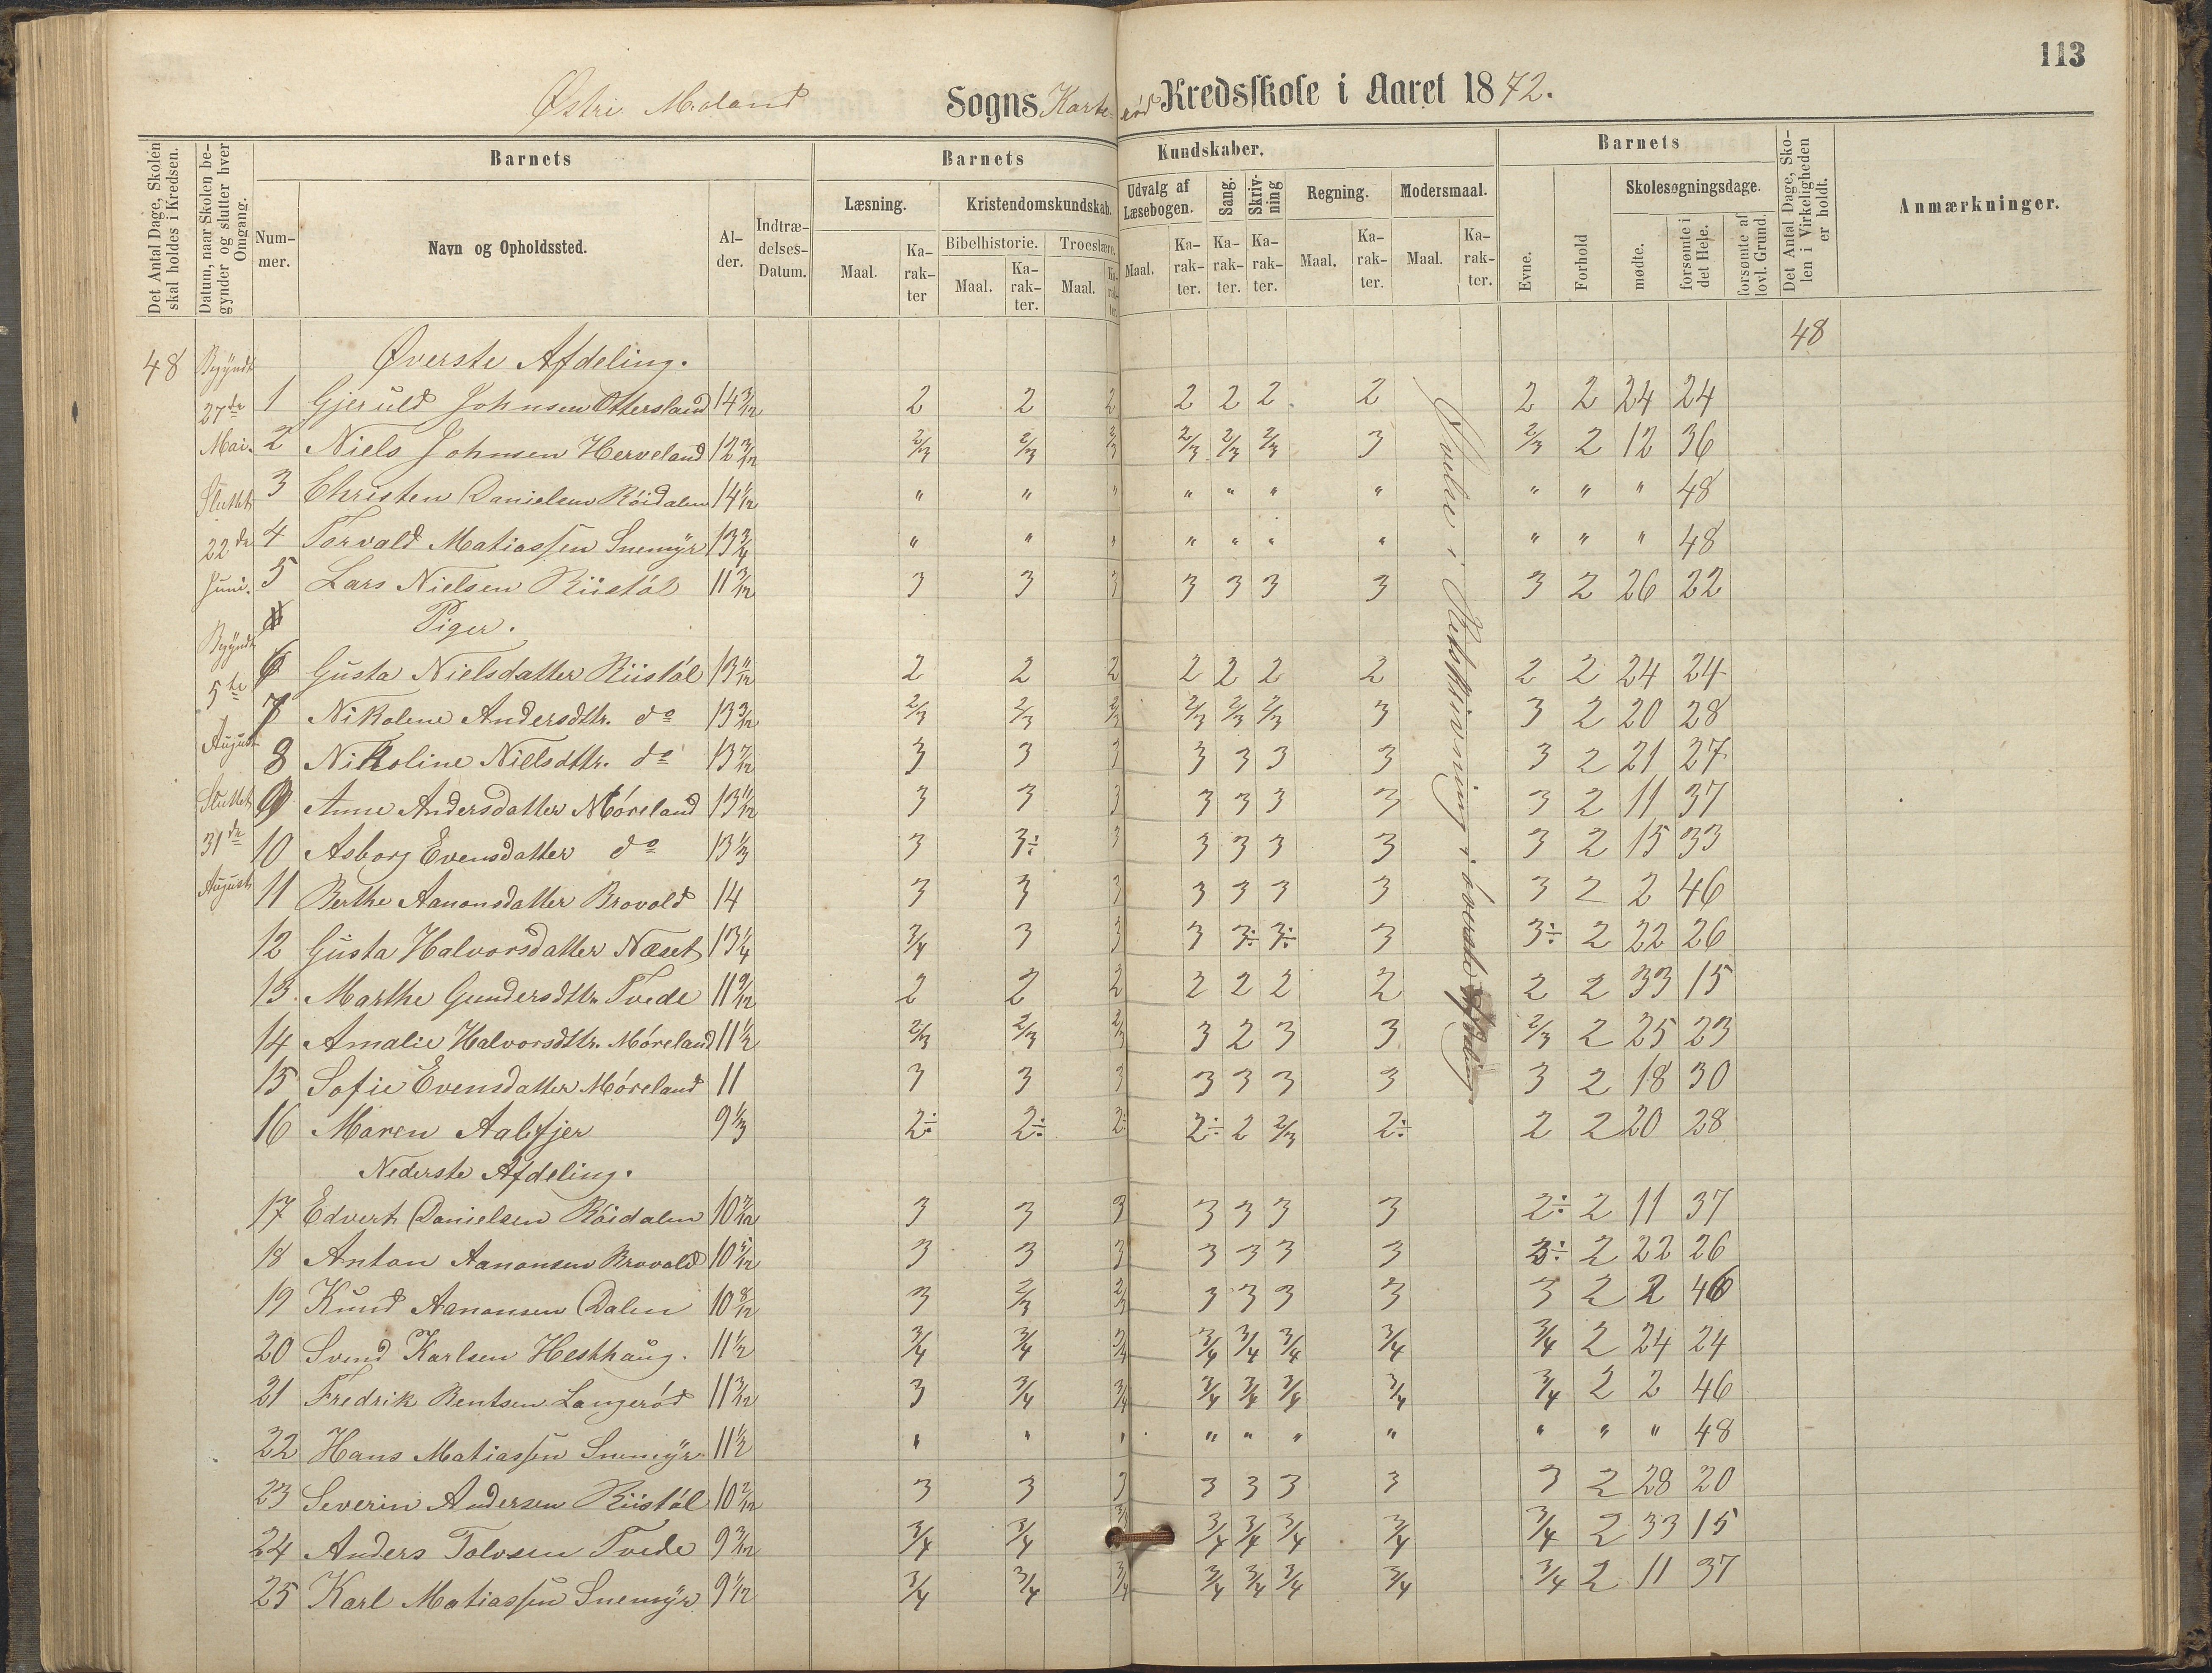 113
Østre Moland Sogns Karte-rød Kredsskole i Aaret 1872.
Det Antal Dage, Skolen skal holdes i Kredsen.
Datum, naar Skolen begynder og slutter hver Omgang.
Barnets
Num-mer.
Navn og Opholdssted.
Al-der.
Indtræ-delses-Datum.
Barnets Kundskaber.
Læsning.
Maal.
Ka-rak-ter
Kristendomskundskab.
Bibelhistorie.
Maal.
Ka-rak-ter.
Troeslære.
Maal.
Ka-rak-ter.
Udvalg af Læsebogen.
Maal.
Ka-rak-ter.
Sang.
Ka-rak-ter.
Skriv-ning
Ka-rak-ter.
Regning.
Maal.
Ka-rak-ter.
Modersmaal.
Maal.
Ka-rak-ter.
Barnets
Evne.
Forhold
Skolesøgningsdage.
mødte.
forsømte i det Hele.
forsømte af lovl. Grund.
Det Antal Dage, Sko-len i Virkeligheden er holdt.
Anmærkninger.
48
Begyndt 27de Mai.
Sluttet 22de Juni.
Begyndt 5te August
Sluttet 31de August
48
Øvelse i Retskrivning i øverste Afdeling.
Øverste Afdeling.
1 Gjeruld Johnsen Ottersland 14 3/12 2 2 2 2 2 2 2 2 2 24 24
2 Niels Johnsen Herveland 12 3/12 2/3 2/3 2/3 2/3 2/3 2/3 3 2/3 2 12 36
3 Christen Danielsen Röidalen 14 1/12 " " " " " " " " " " 48
4 Torvald Matiassen Snemyr 13 3/4 " " " " " " " " " " 48
5 Lars Nielsen Riistöl 11 3/12 3 3 3 3 3 3 3 3 2 26 22
Piger.
6 Gusta Nielsdatter Riistöl 13 11/12 2 2 2 2 2 2 2 2 2 24 24
7 Nikolene Andersdttr. do 13 3/12 2/3 2/3 2/3 2/3 2/3 2/3 3 3 2 20 28
8 Nikoline Nielsdttr. do 13 7/12 3 3 3 3 3 3 3 3 2 21 27
9 Anne Andersdatter Möreland 13 11/12 3 3 3 3 3 3 3 3 2 11 37
10 Asborg Evensdatter do 13 1/3 3 3÷ 3 3 3 3 3 3 2 15 33
11 Berthe Aanonsdatter Brovold 14 3 3 3 3 3 3 3 3 2 2 46
12 Gusta Halvorsdatter Næset 13 1/4 3/4 3 3 3 3÷ 3÷ 3 3÷ 2 22 26
13. Marthe Gundersdttr. Tvede 11 9/12 2 2 2 2 2 2 2 2 2 33 15
14 Amalie Halvorsdttr. Möreland 11 1/2 2/3 2/3 2/3 3 2 3 3 2/3 2 25 23
15 Sofie Evensdatter Möreland 11 3 3 3 3 3 3 3 3 2 18 30
16 Maren Aalefjer 9 1/3 2÷ 2÷ 2÷ 2÷ 2 2/3 2÷ 2 2 20 28
Nederste Afdeling.
17 Edvert Danielsen Röidalen 10 7/12 3 3 3 3 3 3 3 2÷ 2 11 37
18 Anton Aanonsen Brovold 10 5/12 3 3 3 3 3 3 3 3÷ 2 22 26
19 Knud Aanonsen Dalen 10 8/12 3 2/3 2/3 3 3 3 3 3 2 2 46
20 Svend Karlsen Hesthaug. 11 1/2 3/4 3/4 3/4 3/4 3/4 3/4 3/4 3/4 2 24 24
21 Fredrik Bentsen Langeröd 11 3/12 3 3/4 3/4 3/4 3/4 3/4 3/4 3/4 2 2 46
22 Hans Matiassen Snemyr 11 1/2 " " " " " " " " " " 48
23 Severin Andersen Riistöl 10 2/12 3 3 3 3 3 3 3 3 2 28 20
24 Anders Tolvsen Tvede 9 3/12 3/4 3/4 3/4 3/4 3/4 3/4 3/4 3/4 2 33 15
25 Karl Matiassen Snemyr 9 1/12 3/4 3/4 3/4 3/4 3/4 3/4 3/4 3/4 2 11 37